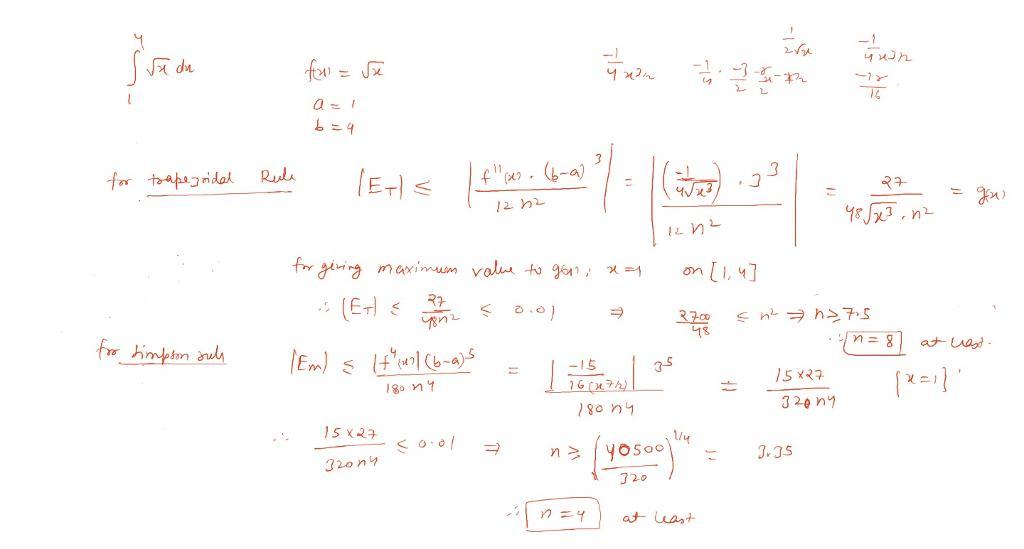 ∫₁⁴ √x dx    f(x) = √x
a = 1
b = 4
-1/(4 x^3/2)
1/(2√x)
-1/(4 x^3/2)
-15/16
for trapezoidal Rule    |E_T| ≤ | f''(x) · (b-a)³ / 12 n² | = | (-1/(4√x³)) · 3³ / 12 n² | = 27/(48√x³ · n²) = g(x)
for giving maximum value to g(x), x = 1 on [1, 4]
∴ |E_T| ≤ 27/(48n²) ≤ 0.01 ⇒ 2700/48 ≤ n² ⇒ n ≥ 7.5
∴ n = 8 at least.
for simpson rule    |Em| ≤ |f⁴(x)| (b-a)⁵ / 180 n⁴ = | -15/(16(x^7/2)) | 3⁵ / 180 n⁴ = 15 × 27 / 320 n⁴    {x = 1}
∴ 15 × 27 / 320 n⁴ ≤ 0.01 ⇒ n ≥ (40500/320)^1/4 = 3.35
∴ n = 4 at least